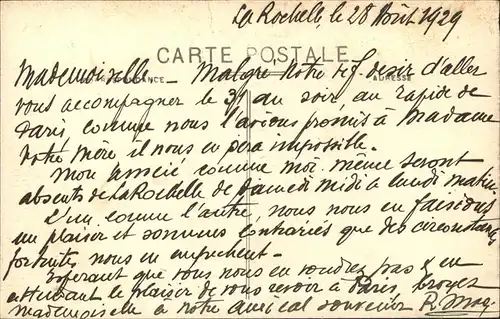 La Rochelle, le 28 Août 1929
CARTE POSTALE
CORRESPONDANCE ADRESSE
Mademoiselle _ Malgré notre vif désir d'aller
vous accompagner le 31 au soir, au rapide de
Paris, comme nous l'avions promis à Madame
votre mère il nous en sera impossible.
Mon associé comme moi même seront
absents de La Rochelle de samedi midi à lundi matin
L'un comme l'autre, nous nous en faisions
un plaisir et sommes contrariés que des circonstances
fortuites nous en empêchent _
Espérant que vous nous en voudrez pas & en
attendant le plaisir de vous revoir à Paris, croyez
mademoiselle à notre amical souvenir